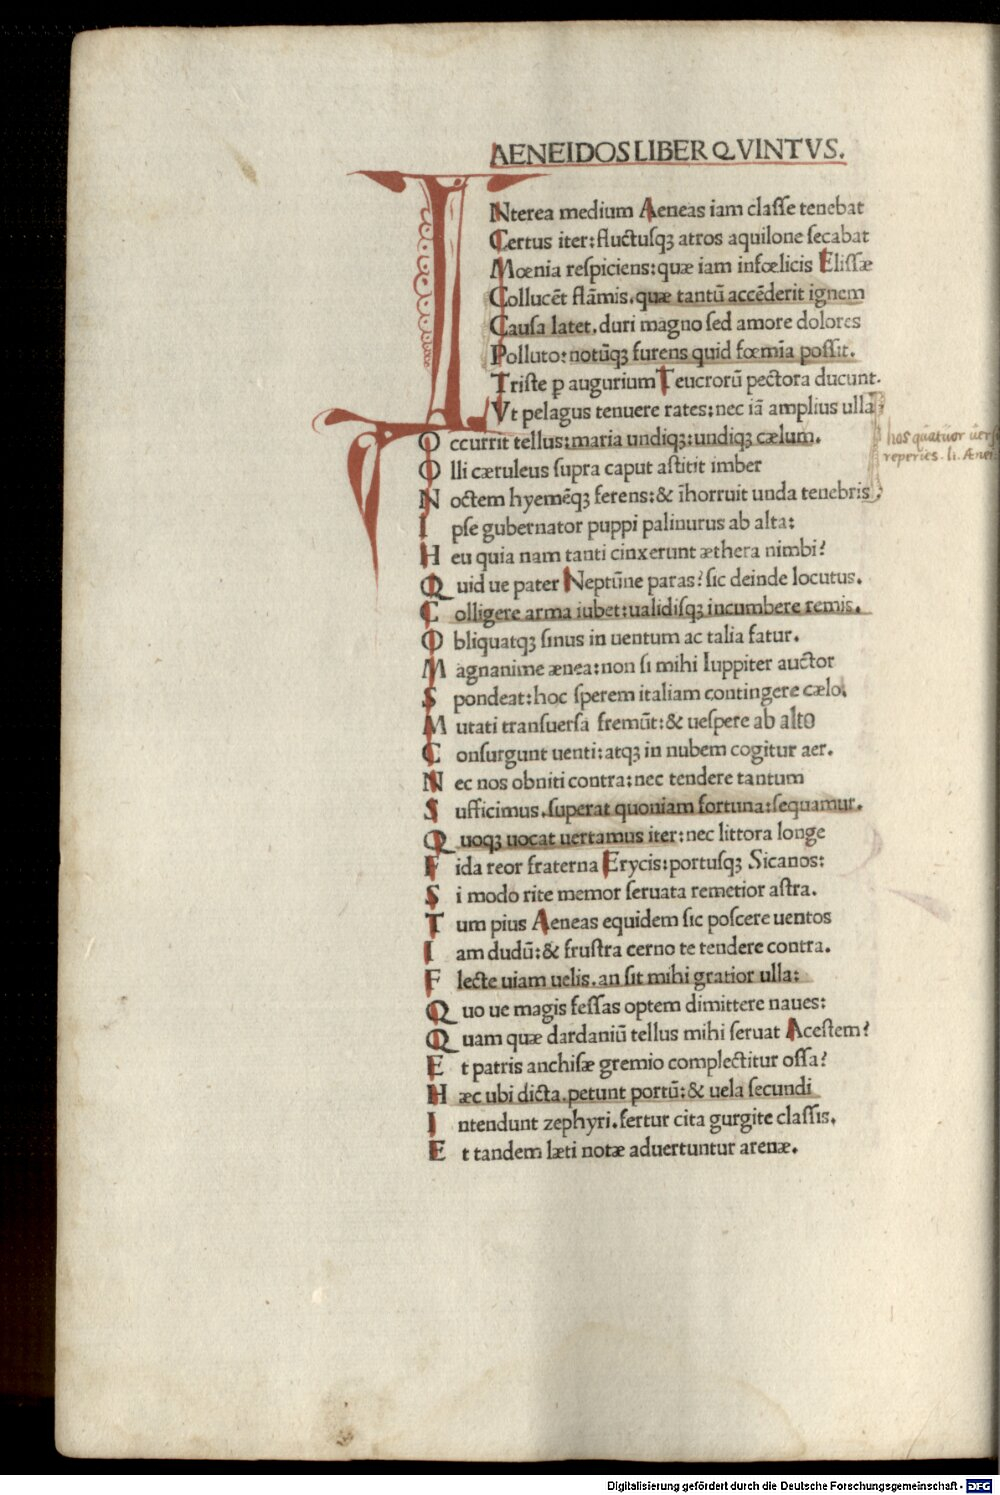 AENEIDOS LIBER QVINTVS.
INterea medium Aeneas iam claſſe tenebat
Certus iter: fluctuſqꝫ atros aquilone ſecabat
Mœnia reſpiciens: quæ iam infœlicis Eliſſæ
Collucēt flāmis. quæ tantū accēderit ignem
Cauſa latet. duri magno ſed amore dolores
Polluto: notūqꝫ furens quid fœmīa poſſit.
Triſte ꝑ augurium Teucrorū pectora ducunt.
Vt pelagus tenuere rates: nec iā amplius ulla
O ccurrit tellus: maria undiqꝫ: undiqꝫ cælum.
O lli cæruleus ſupra caput aſtitit imber
N octem hyemēqꝫ ferens: & īhorruit unda tenebris
I pſe gubernator puppi palinurus ab alta:
H eu quia nam tanti cinxerunt æthera nimbi?
Q uid ue pater Neptūne paras? ſic deinde locutus.
C olligere arma iubet: ualidiſqꝫ incumbere remis.
O bliquatqꝫ ſinus in uentum ac talia fatur.
M agnanime ænea: non ſi mihi Iuppiter auctor
S pondeat: hoc ſperem italiam contingere cælo.
M utati tranſuerſa fremūt: & ueſpere ab alto
C onſurgunt uenti: atqꝫ in nubem cogitur aer.
N ec nos obniti contra: nec tendere tantum
S ufficimus. ſuperat quoniam fortuna: ſequamur.
Q uoqꝫ uocat uertamus iter: nec littora longe
F ida reor fraterna Erycis: portuſqꝫ Sicanos:
S i modo rite memor ſeruata remetior aſtra.
T um pius Aeneas equidem ſic poſcere uentos
I am dudū: & fruſtra cerno te tendere contra.
F lecte uiam uelis. an ſit mihi gratior ulla:
Q uo ue magis feſſas optem dimittere naues:
Q uam quæ dardaniū tellus mihi ſeruat Aceſtem?
E t patris anchiſæ gremio complectitur oſſa?
H æc ubi dicta. petunt portū: & uela ſecundi
I ntendunt zephyri. fertur cita gurgite claſſis.
E t tandem læti notæ aduertuntur arenæ.
hos quatuor
reperies. li. Ænei
Digitalisierung gefördert durch die Deutsche Forschungsgemeinschaft - DFG